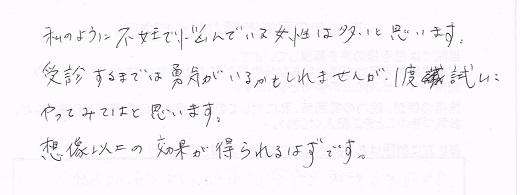 私のように不妊で悩んでいる女性は多いと思います。
受診するまでは勇気がいるかもしれませんが、1度試しに
やってみてはと思います。
想像以上の効果が得られるはずです。